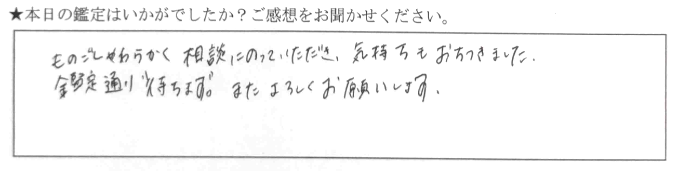 ★本日の鑑定はいかがでしたか？ご感想をお聞かせください。
ものごしやわらかく相談にのっていただき、気持ちもおちつきました。
鑑定通り待ちます。またよろしくお願いします。